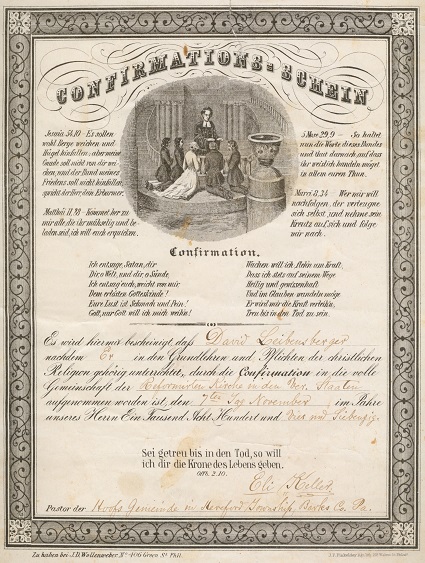 CONFIRMATIONS=SCHEIN
Jesaia 54,10 - Es sollen
wohl Berge weichen und
Hügel hinfallen; aber meine
Gnade soll nicht von dir wei-
chen, und der Bund meines
Friedens soll nicht hinfallen,
spricht der Herr, dein Erbarmer.
Matthäi 11,28 - Kommet her zu
mir alle, die ihr mühselig und be-
laden seid, ich will euch erquicken.
5 Mose 29,9 - So haltet
nun die Worte dieses Bundes
und thut darnach, auf dass
ihr weislich handeln möget
in allem eurem Thun.
Marci 8,34 Wer mir will
nachfolgen, der verleugne
sich selbst, und nehme sein
Kreuz auf sich und folge
mir nach.
Confirmation.
Ich entsage, Satan, dir
Dir, o Welt, und dir, o Sünde,
Ich entsag' euch, weicht von mir
Dem erlösten Gotteskinde!
Eure Lust ist Schmach und Pein!
Gott, nur Gott will ich mich weihn!
Wachen will ich, flehn um Kraft,
Dass ich stets auf seinem Wege
Heilig und gewissenhaft
Und im Glauben wandeln möge
Er wird mir die Kraft verleihn,
Treu bis in den Tod zu sein.
Es wird hiermit bescheinigt, daß David Leibensberger
nachdem Er in den Grundlehren und Pflichten der christlichen
Religion gehörig unterrichtet, durch die Confirmation in die volle
Gemeinschaft der Reformirten Kirche in den Ver. Staaten
aufgenommen worden ist, den 7ten Tag November im Jahre
unseres Herrn Ein Tausend Acht Hundert und Vier und Siebenzig.
Sei getreu bis in den Tod, so will
ich dir die Krone des Lebens geben.
Offb. 2.10.
Eli Keller
Pastor der Hochs Gemeinde in Hereford Township, Berks Co. Pa.
Zu haben bei J.D. Wollenweber, No 406 Green St. Phil.